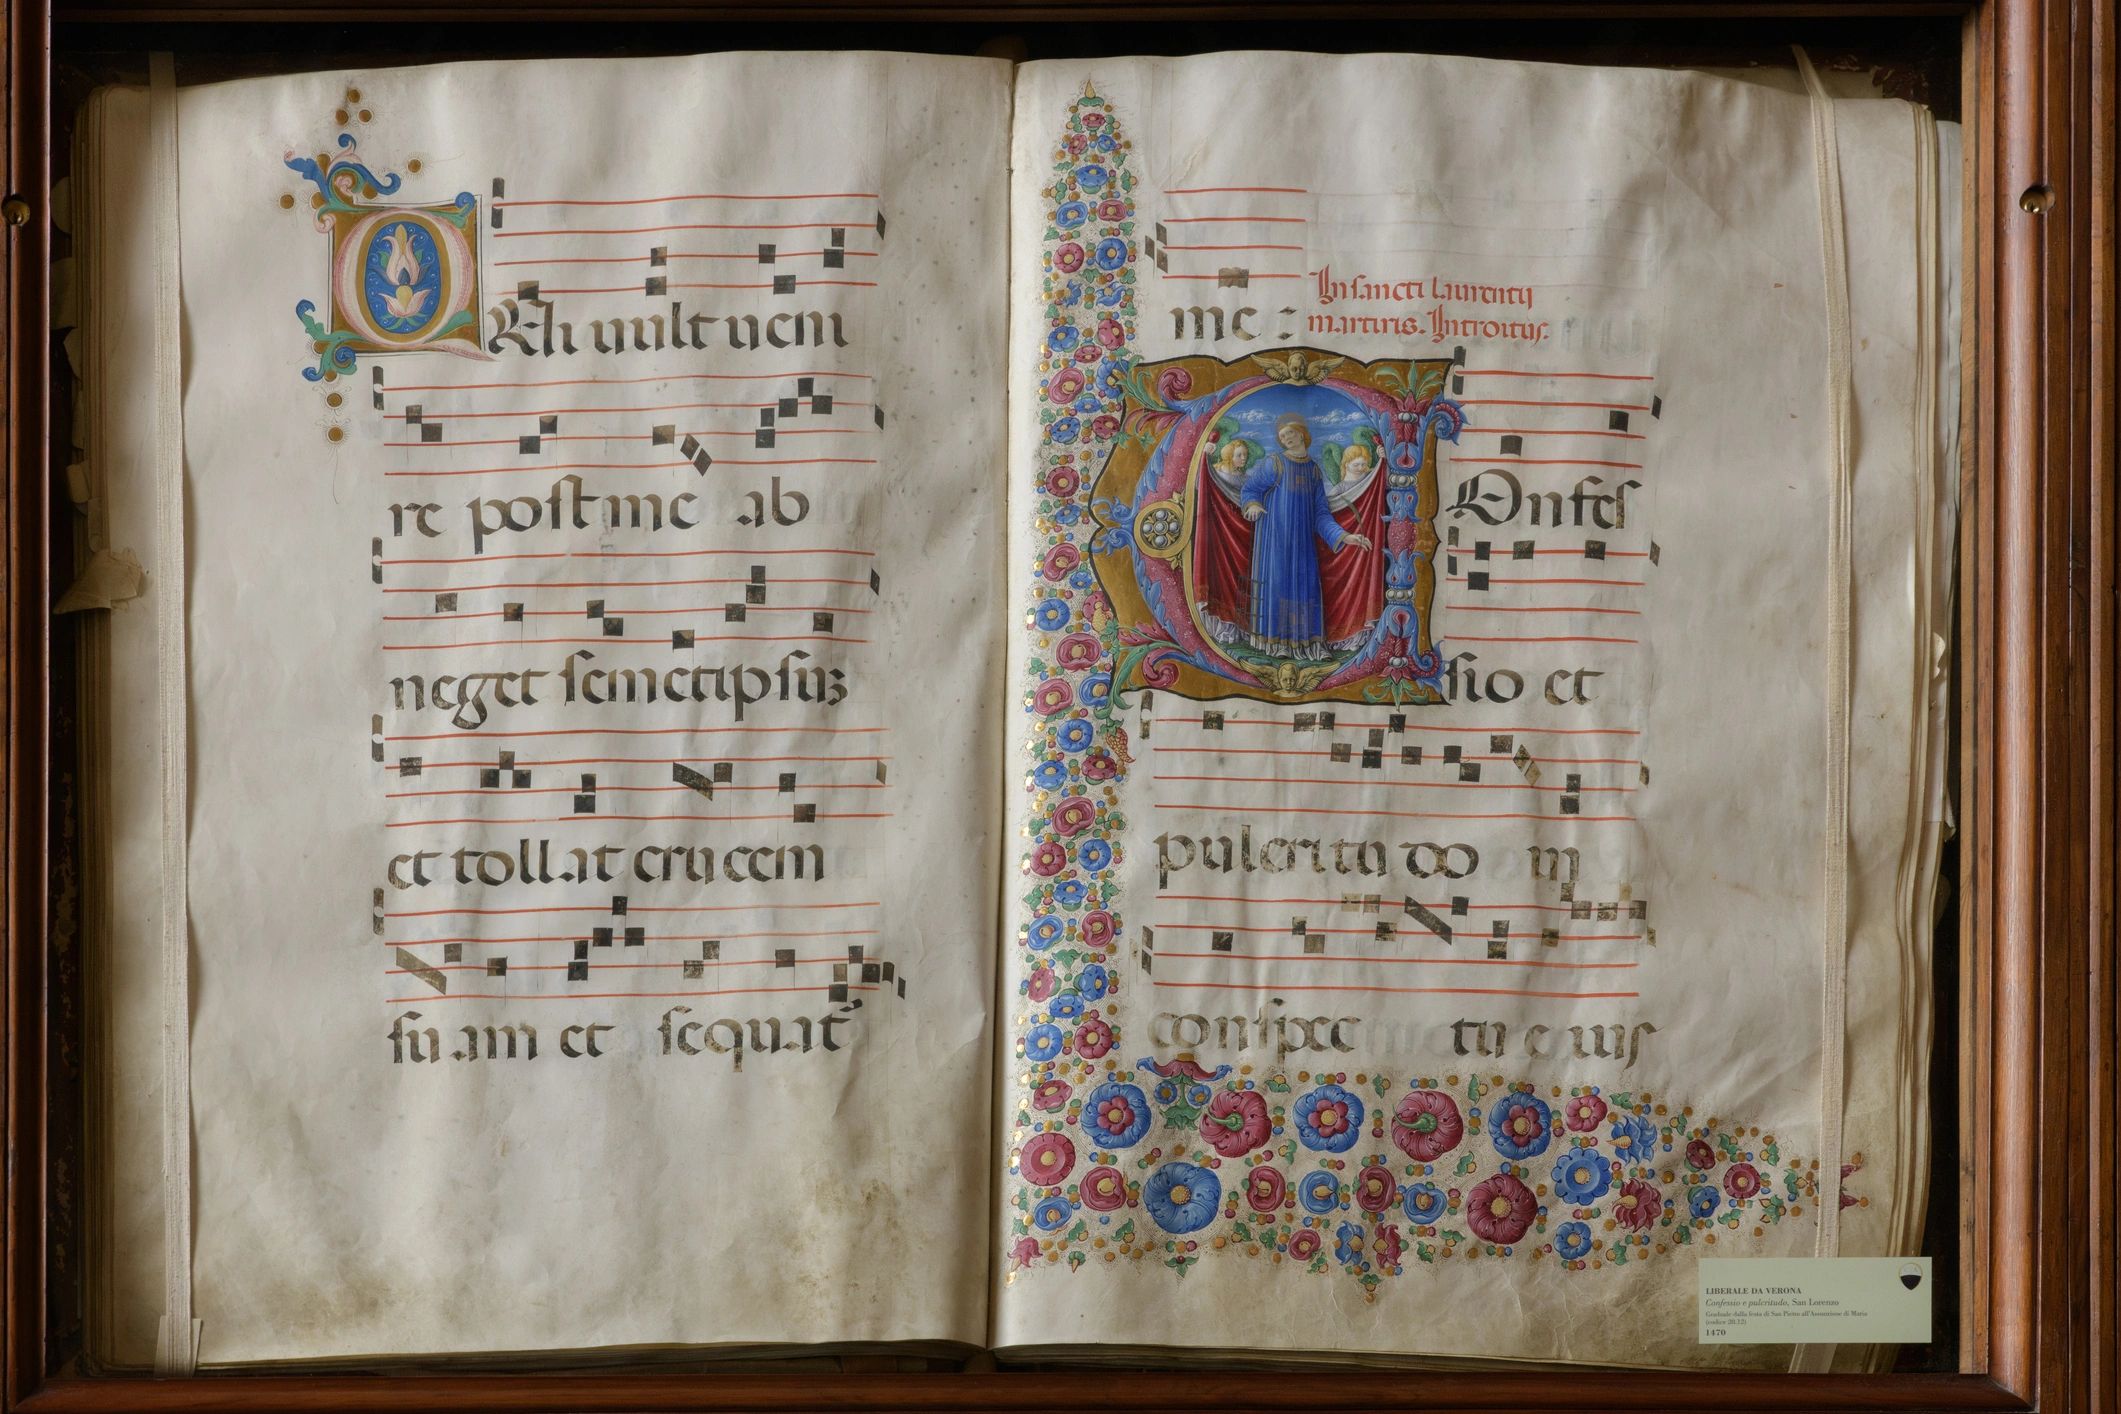 QUi uult ueni
re post me ab
neget semetipsuz
et tollat crucem
suam et sequat᷑
me :
In sancti laurentij
martiris. Introitus.
COnfes
sio et
pulcritudo in
conspectu eius
LIBERALE DA VERONA
Confessio e pulcritudo, San Lorenzo
Graduale dalla festa di San Pietro all'Assunzione di Maria
(codice 20.12)
1470